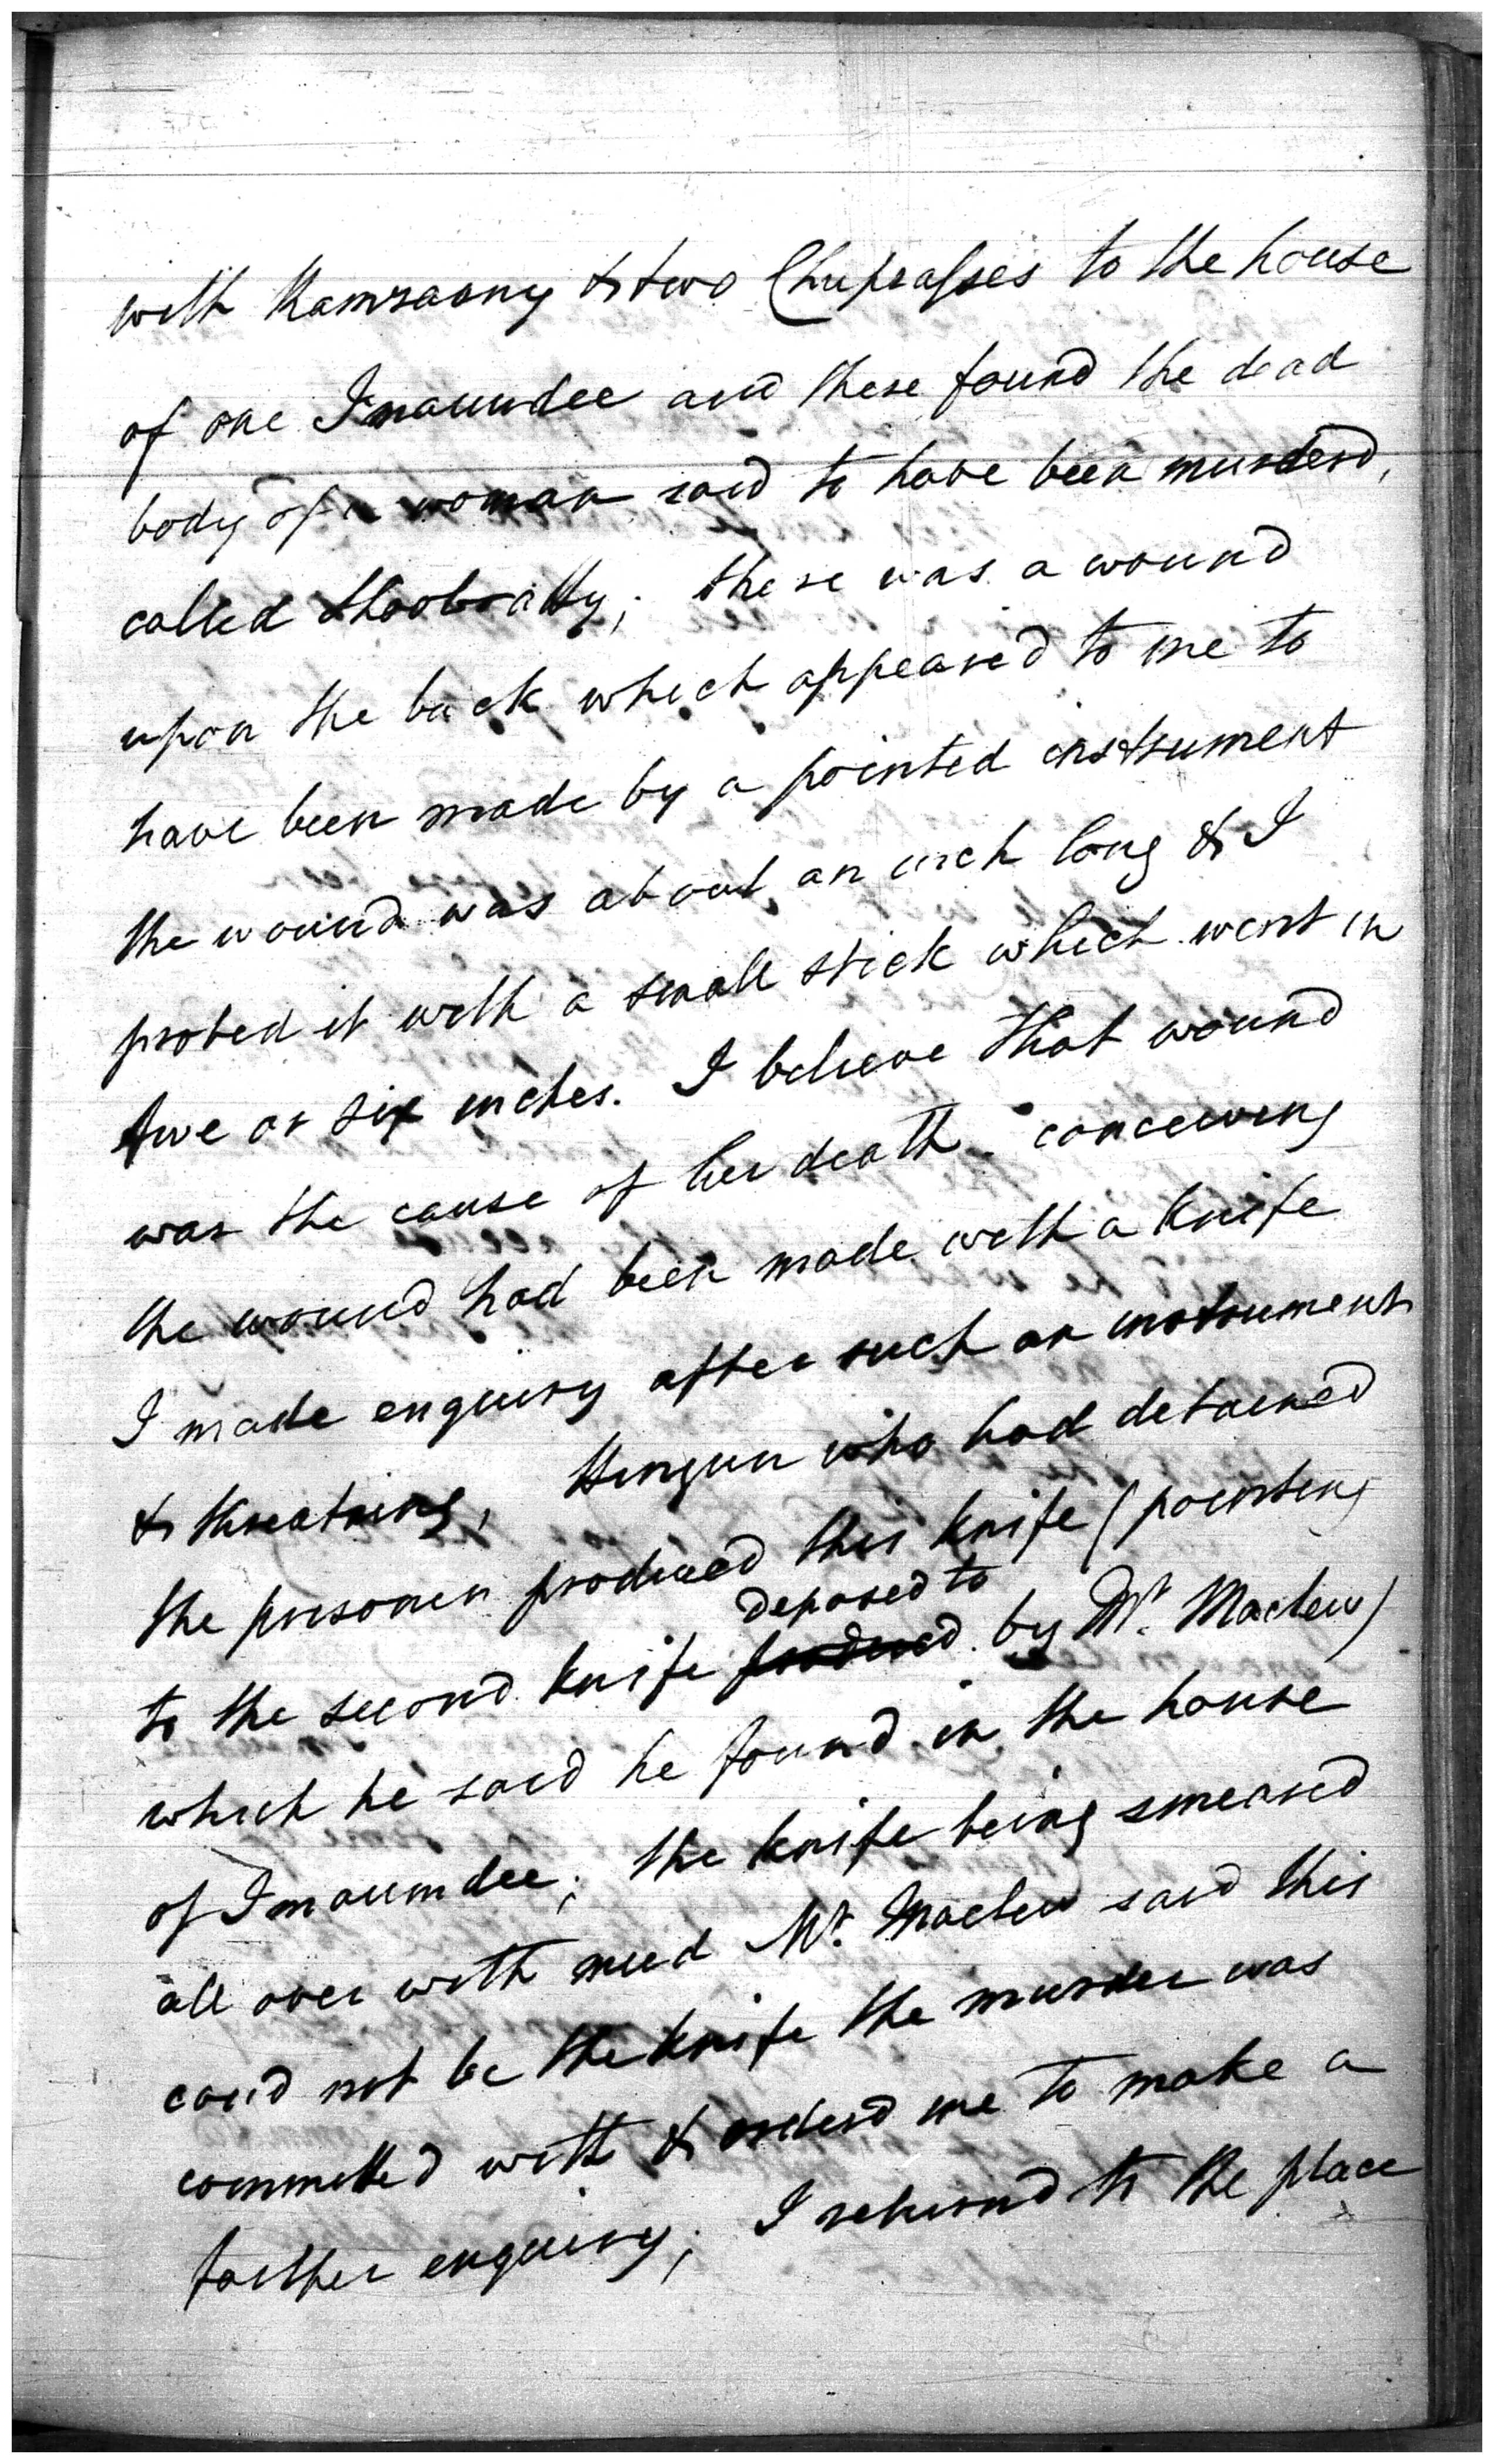 with Ramzaany & two Chuprasses to the house
of one Imaumdee and there found the dead
body of a woman said to have been murderd,
called ; there was a wound
upon the back which appeared to me to
have been made by a pointed instrument
the wound was about an inch long & I
probed it with a small stick which went in
five or six inches. I believe that wound
was the cause of her death. conceiving
the wound had been made with a knife
I made enquiry after such an instrument
& threatning, Hingun who had detained
the prisoner produced this knife (pointing
deposed to
to the second knife produced by Mr. Maclew)
which he said he found in the house
of Imaumdee; the knife being smeared
all over with mud Mr. Maclew said this
coud not be the knife the murder was
committed with & orderd me to make a
farther enquiry; I returnd to the place